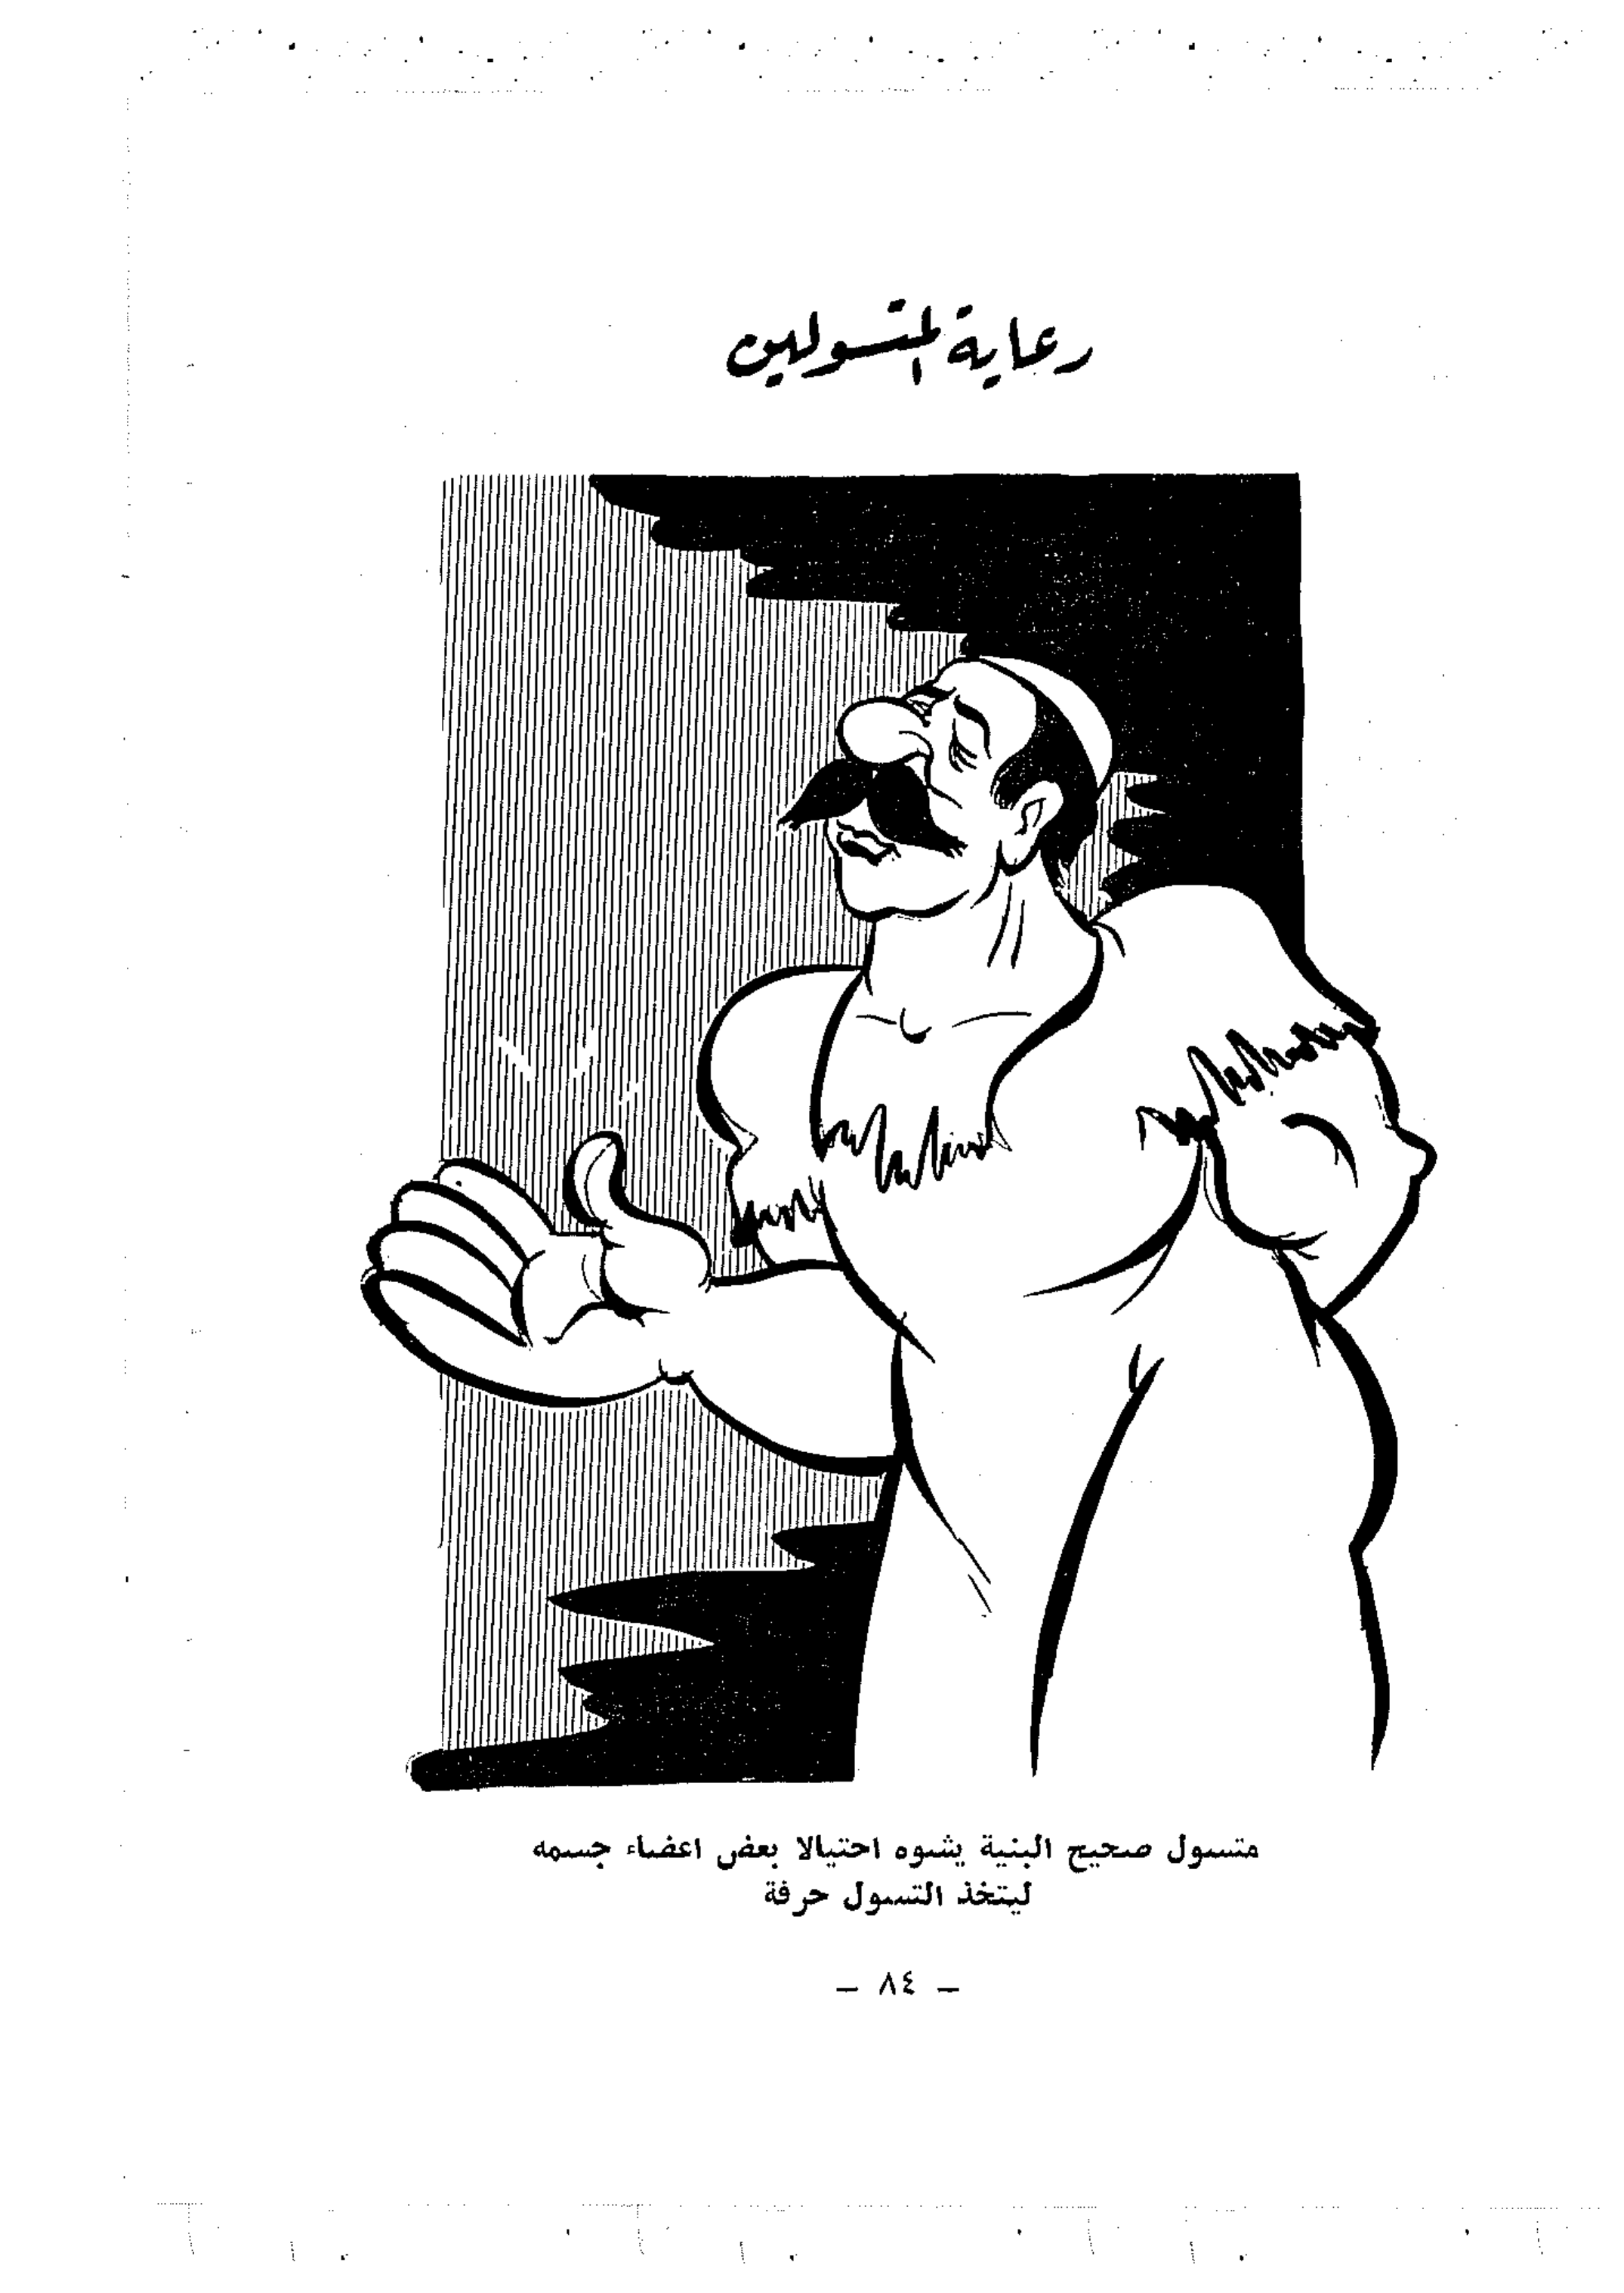 رعاية المتسولين
متسول صحيح البنية يشوه احتيالا بعض اعضاء جسمه
ليتخذ التسول حرفة
— ٨٤ —